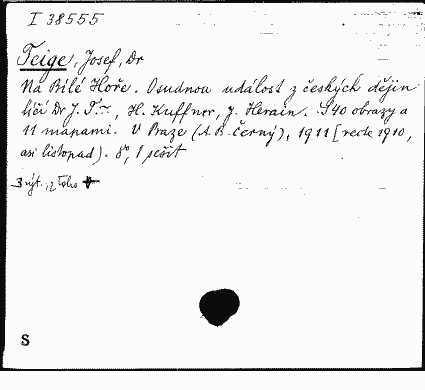 I 38555
Teige, Josef, Dr
Na Bílé Hoře. Osudnou událost z českých dějin
líčí Dr J. T~, H. Kuffner, J. Herain. S 40 obrazy a
11 mapami. V Praze (A. B. Černý), 1911 [recte 1910,
asi listopad). 8°, 1 sešit
3 výt.
S